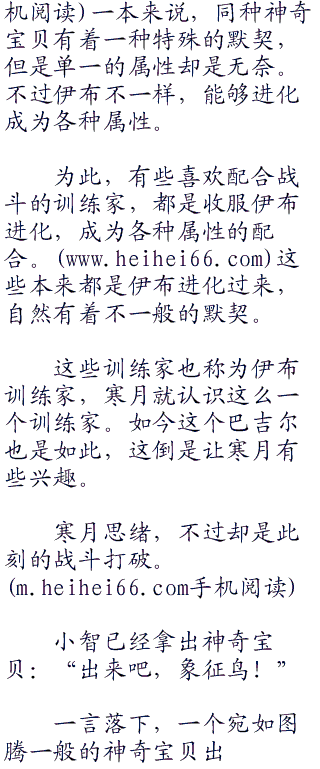 机阅读)一本来说，同种神奇
宝贝有着一种特殊的默契，
但是单一的属性却是无奈。
不过伊布不一样，能够进化
成为各种属性。
为此，有些喜欢配合战
斗的训练家，都是收服伊布
进化，成为各种属性的配
合。(www.heihei66.com)这
些本来都是伊布进化过来，
自然有着不一般的默契。
这些训练家也称为伊布
训练家，寒月就认识这么一
个训练家。如今这个巴吉尔
也是如此，这倒是让寒月有
些兴趣。
寒月思绪，不过却是此
刻的战斗打破。
(m.heihei66.com手机阅读)
小智已经拿出神奇宝
贝：“出来吧，象征鸟！”
一言落下，一个宛如图
腾一般的神奇宝贝出